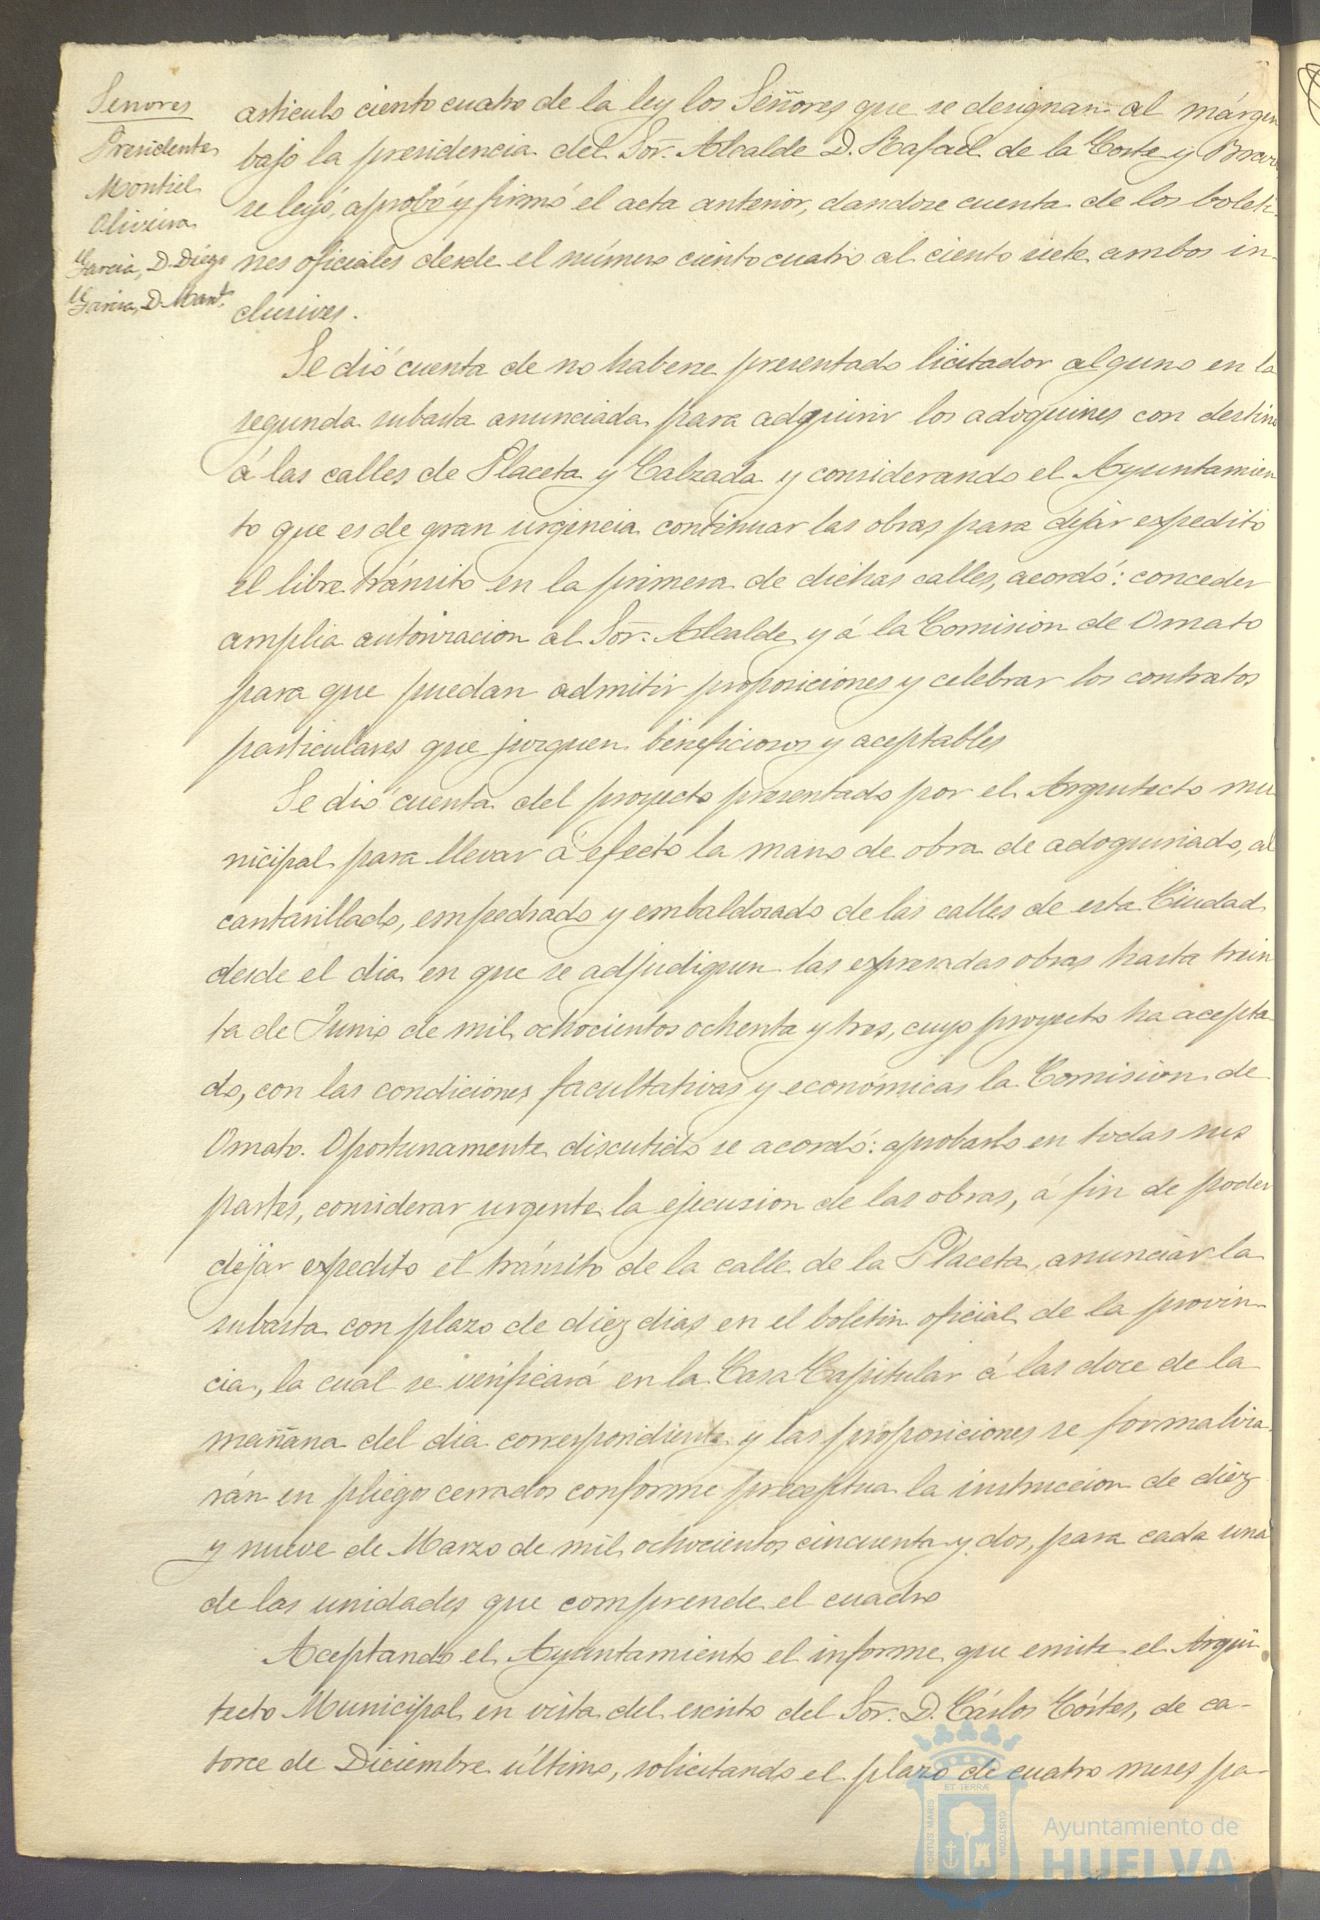 Señores
Presidente
Montiel
Oliveira
Garcia, D. Diego
Garcia, D. Manl.
articulo ciento cuatro de la ley los Señores que se designan al márgen
bajo la presidencia del Sor. Alcalde D. Rafael de la Corte y Bravo
se leyó, aprobó y firmó el acta anterior, dandose cuenta de los boleti-
nes oficiales desde el número ciento cuatro al ciento siete ambos in-
clusives.
Se dió cuenta de no haberse presentado licitador alguno en la
segunda subasta anunciada para adquirir los adoquines con destino
á las calles de Placeta y Calzada y considerando el Ayuntamien
to que es de gran urgencia continuar las obras para dejar expedito
el libre tránsito en la primera de dichas calles, acordó: conceder
amplia autorizacion al Sor. Alcalde y á la Comision de Ornato
para que puedan admitir proposiciones y celebrar los contratos
particulares que juzguen beneficiosos y aceptables
Se dió cuenta del proyecto presentado por el Arquitecto mu
nicipal para llevar á efecto la mano de obra de adoquinado, al
cantarillado, empedrado y embaldosado de las calles de esta Ciudad
desde el dia en que se adjudiquen las expresadas obras hasta trein
ta de Junio de mil ochocientos ochenta y tres, cuyo proyecto ha acepta
do, con las condiciones facultativas y económicas la Comision de
Ornato. Oportunamente discutido se acordó: aprobarlo en todas sus
partes, considerar urgente la ejecucion de las obras, á fin de poder
dejar expedito el tránsito de la calle de la Placeta, anunciar la
subasta con plazo de diez dias en el boletin oficial de la provin-
cia, la cual se verificará en la Casa Capitular á las doce de la
mañana del dia correspondiente y las proposiciones se formaliza
rán en pliegos cerrados conforme preceptua la instruccion de diez
y nueve de Marzo de mil ochocientos cincuenta y dos, para cada una
de las unidades que comprende el cuadro
Aceptando el Ayuntamiento el informe que emite el Arqui-
tecto Municipal en vista del escrito del Sor. D. Cárlos Córtes, de ca-
torce de Diciembre último, solicitando el plazo de cuatro meses pa-
ET TERRÆ
PORTUS MARIS
CUSTODIA
Ayuntamiento de
HUELVA